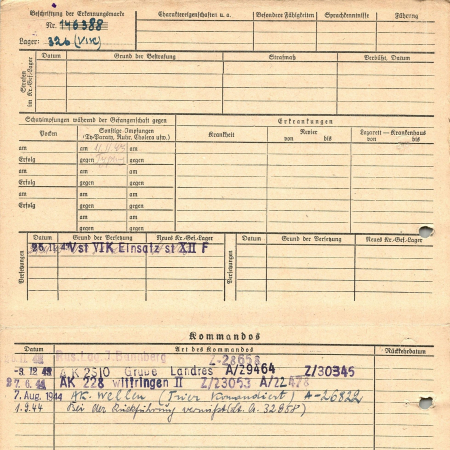 Beschriftung der Erkennungsmarke Charaktereigenschaften u. a. Besondere Fähigkeiten Sprachkenntnisse Führung
Nr. 146388
Lager: 326 (VIK)
Strafen im Kr.-Gef.-Lager Datum Grund der Bestrafung Strafmaß Verbüßt, Datum
Schutzimpfungen während der Gefangenschaft gegen Erkrankungen
Pocken Sonstige Impfungen (Ty-Paraty, Ruhr, Cholera usw.) Krankheit Revier von bis Lazarett — Krankenhaus von bis
am am 11.11.44
Erfolg gegen gegen
am am
Erfolg gegen gegen
am am
Erfolg gegen gegen
am
gegen
Versetzungen Datum Grund der Versetzung Neues Kr.-Gef.-Lager Versetzungen Datum Grund der Versetzung Neues Kr.-Gef.-Lager
V st VIK Einsatz st XII F
Kommandos
Datum Art des Kommandos Rückkehrdatum
Z-28658
AK 2310 Grube Landres A/29464 Z/30345
AK 228 wittringen II Z/23053 A/22478
7. Aug. 1944 AK. Wellen (Trier Komandiert) A-26822
1.9.44 Bei der Rückführung